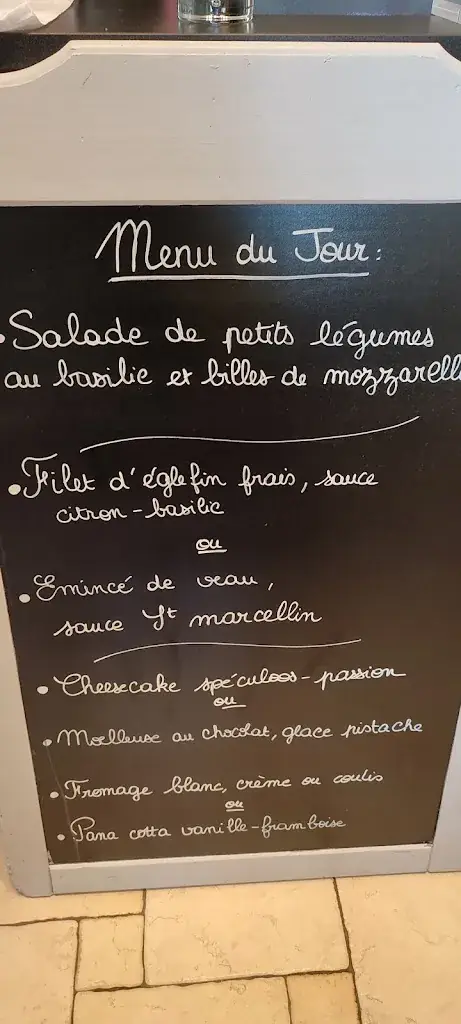 Menu du Jour :
• Salade de petits légumes
au basilic et billes de mozzarell
• Filet d'églefin frais, sauce
citron - basilic
ou
• Emincé de veau,
sauce St marcellin
• Cheesecake spéculoos - passion
ou
• Moelleuse au chocolat, glace pistache
• Fromage blanc, crème ou coulis
ou
• Pana cotta vanille - framboise